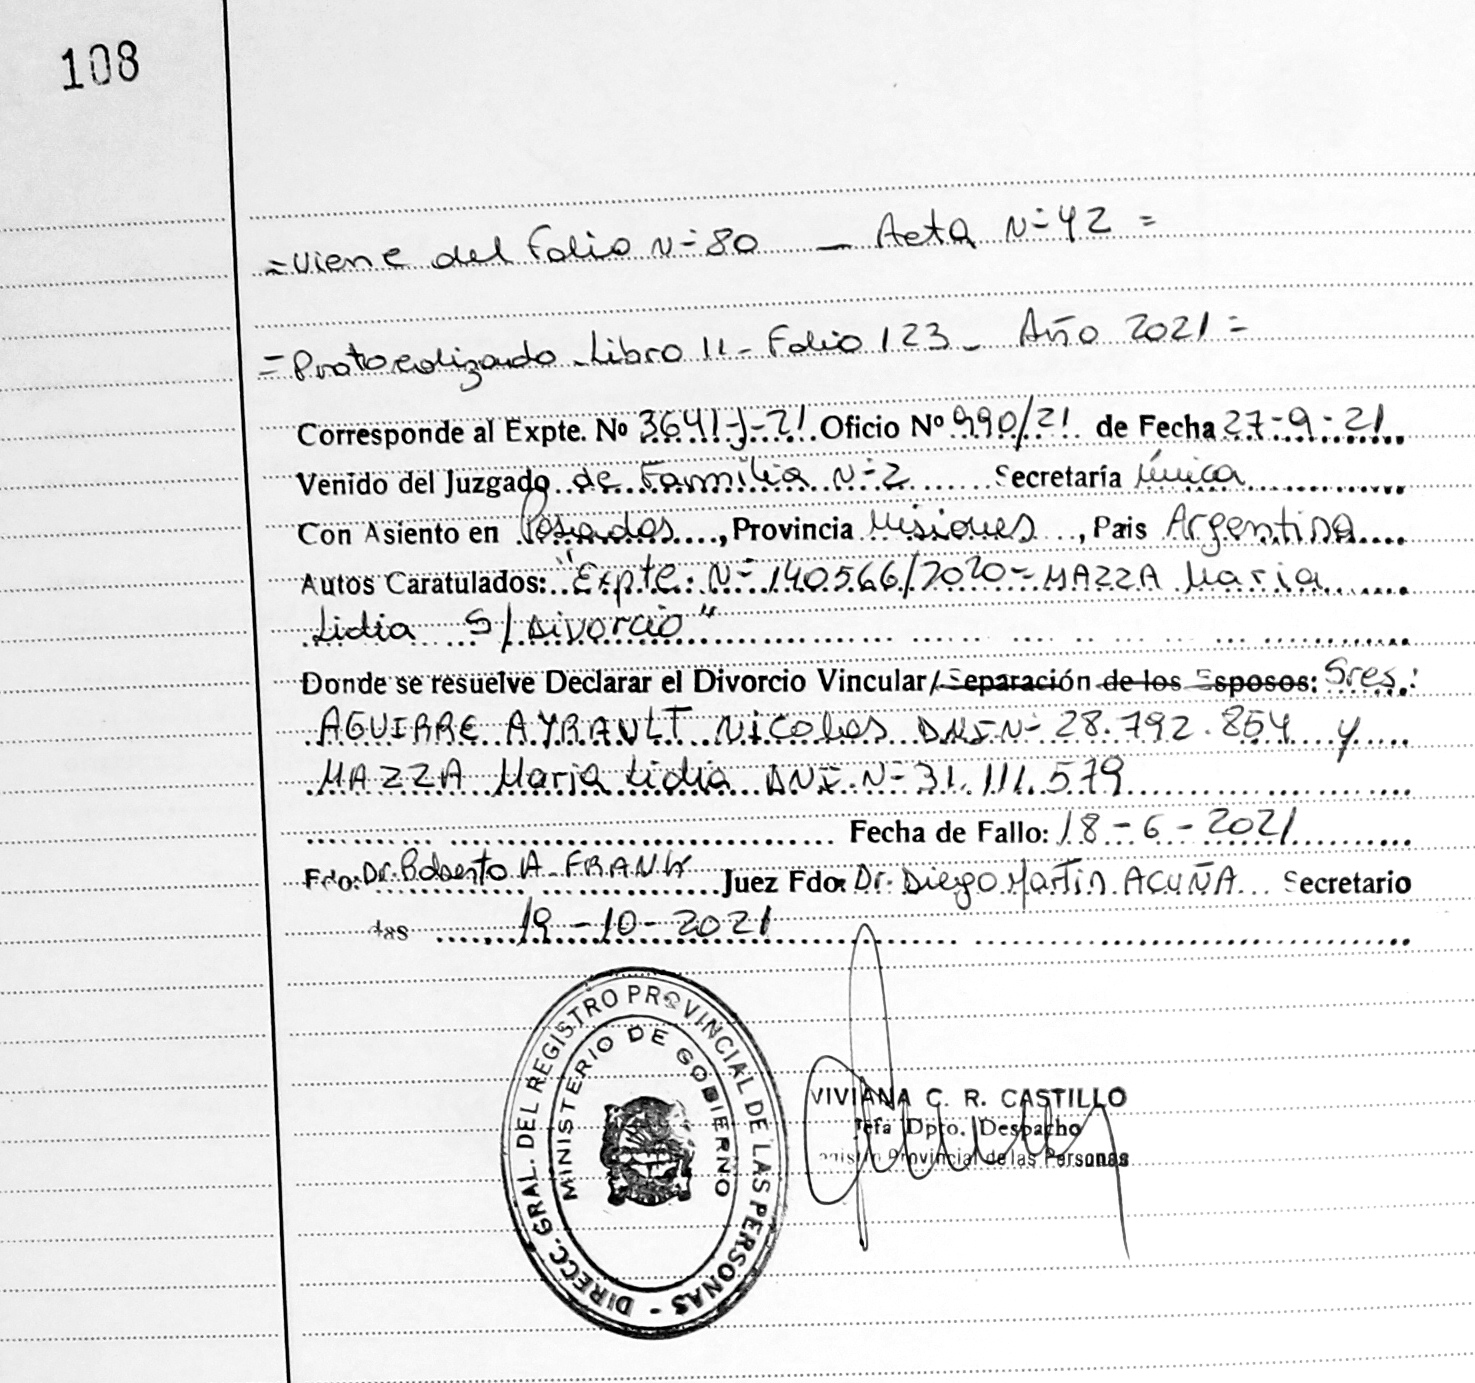 108
=Viene del Folio N=80 — Acta N=42 =
= Protocolizado - Libro 11 - Folio 123 - Año 2021 =
Corresponde al Expte. Nº 3641-J-21 Oficio Nº 990/21 de Fecha 27-9-21
Venido del Juzgado de Familia N=2 Secretaría Única
Con Asiento en Posadas, Provincia Misiones, Pais Argentina
Autos Caratulados: "Expte: N=140566/2020= MAZZA Maria
Lidia S/Divorcio"
Donde se resuelve Declarar el Divorcio Vincular/Separación de los Esposos: Sres.:
AGUIRRE AYRAULT Nicolas DNI N=28.792.854 y
MAZZA Maria Lidia DNI.N=31.111.579
Fecha de Fallo: 18-6-2021
Fdo: Dr. Roberto A. FRANK Juez Fdo: Dr. Diego Martin ACUÑA Secretario
19-10-2021
DIRECC. GRAL. DEL REGISTRO PROVINCIAL DE LAS PERSONAS -
MINISTERIO DE GOBIERNO
VIVIANA C. R. CASTILLO
Jefa Dpto. Despacho
Provincial de las Personas